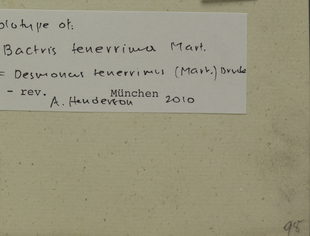 olotype of:
Bactris tenerrima Mart.
= Desmoncus tenerrimus (Mart.) Drude
- rev. München
A. Henderson 2010
98